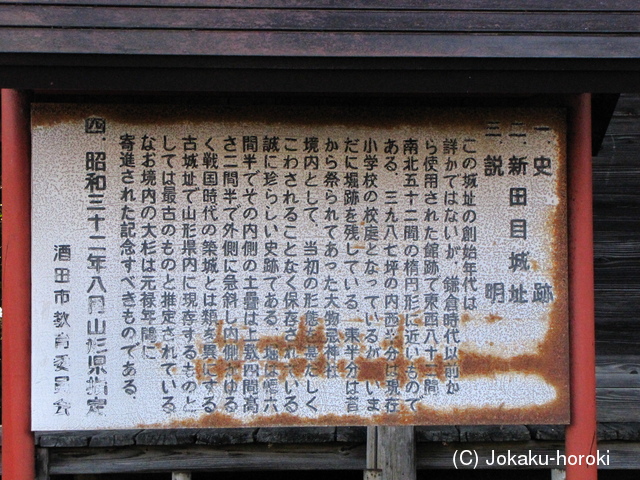 一、史跡
二、新田目城址
三、説明
この城址の創始年代は
詳かではないが、鎌倉時代以前か
ら使用された館跡で東西八十二間
南北五十二間の楕円形に近いもので
ある。三九八七坪の内西半分は現存
小学校の校庭となっているが、いま
だに堀跡を残している。東半分は昔
から祭られてあった大物忌神社
境内として、当初の形態も甚だしく
こわされることなく保存されている
誠に珍らしい史跡である。堀は幅六
間半でその内側の土塁は上敷四間高
さ二間半で外側に急斜し内側がゆる
く戦国時代の築城とは類を異にする
古城址で山形県内に現存するものと
しては最古のものと推定されている
なお境内の大杉は元禄年間に
寄進された記念すべきものである。
四、昭和三十二年八月山形県指定
酒田市教育委員会
(C) Jokaku-horoki